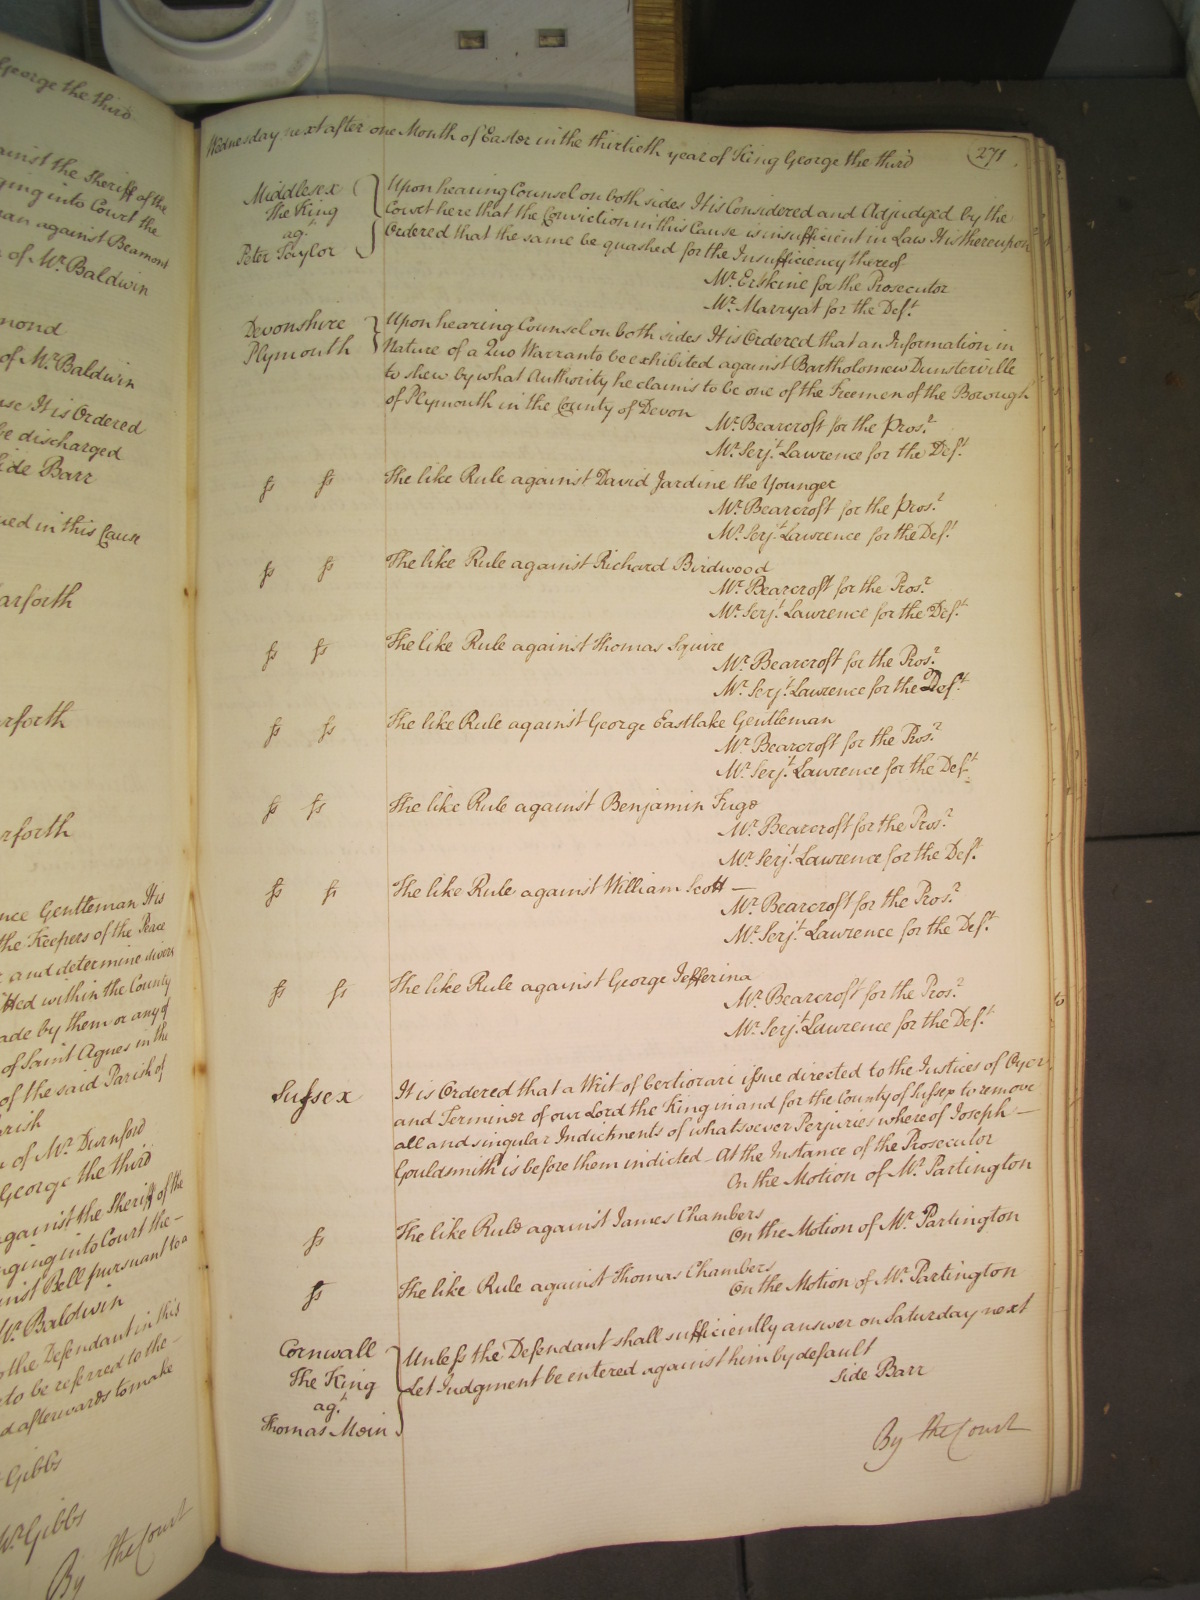 George the third
ainst the Sheriff of the
ging into Court the
man against Beamont
of Mr. Baldwin
mond
of Mr. Baldwin
use It is Ordered
be discharged
Side Barr
ued in this Cause
arforth
rforth
rforth
nce Gentleman His
the Keepers of the Peace
and determine divers
tted within the County
ade by them or any of
of Saint Agnes in the
of the said Parish of
rish
of Mr. Durnford
George the third
against the Sheriff of the
nging into Court the
inst Bell pursuant to a
Mr. Baldwin
the Defendant in this
to be referred to the
d afterwards to make
Gibbs
Mr. Gibbs
By the Court
Wednesday next after one Month of Easter in the thirtieth year of King George the third
271
Middlesex
The King
agt.
Peter Taylor
Upon hearing Counsel on both sides It is Considered and Adjudged by the
Court here that the Conviction in this Cause is insufficient in Law It is thereupon
Ordered that the same be quashed for the Insufficiency thereof
Mr. Erskine for the Prosecutor
Mr. Marryat for the Deft.
Devonshire
Plymouth
Upon hearing Counsel on both sides It is Ordered that an Information in
Nature of a Quo Warranto be exhibited against Bartholomew Dunsterville
to shew by what Authority he claims to be one of the Freemen of the Borough
of Plymouth in the County of Devon
Mr. Bearcroft for the Prosr.
Mr. Serjt. Lawrence for the Deft.
ss ss The like Rule against David Jardine the Younger
Mr. Bearcroft for the Prosr.
Mr. Serjt. Lawrence for the Deft.
ss ss The like Rule against Richard Birdwood
Mr. Bearcroft for the Prosr.
Mr. Serjt. Lawrence for the Deft.
ss ss The like Rule against Thomas Squire
Mr. Bearcroft for the Prosr.
Mr. Serjt. Lawrence for the Deft.
ss ss The like Rule against George Eastlake Gentleman
Mr. Bearcroft for the Prosr.
Mr. Serjt. Lawrence for the Deft.
ss ss The like Rule against Benjamin Fuge
Mr. Bearcroft for the Prosr.
Mr. Serjt. Lawrence for the Deft.
ss ss The like Rule against William Scott —
Mr. Bearcroft for the Prosr.
Mr. Serjt. Lawrence for the Deft.
ss ss The like Rule against George Jefferina
Mr. Bearcroft for the Prosr.
Mr. Serjt. Lawrence for the Deft.
Sussex
It is Ordered that a Writ of Certiorari issue directed to the Justices of Oyer
and Terminer of our Lord the King in and for the County of Sussex to remove
all and singular Indictments of whatsoever Perjuries whereof Joseph —
Gouldsmith is before them indicted - At the Instance of the Prosecutor
On the Motion of Mr. Partington
ss The like Rule against James Chambers
On the Motion of Mr. Partington
ss The like Rule against Thomas Chambers
On the Motion of Mr. Partington
Cornwall
The King
agt.
Thomas Moin
Unless the Defendant shall sufficiently answer on Saturday next
Let Judgment be entered against him by default
Side Barr
By the Court